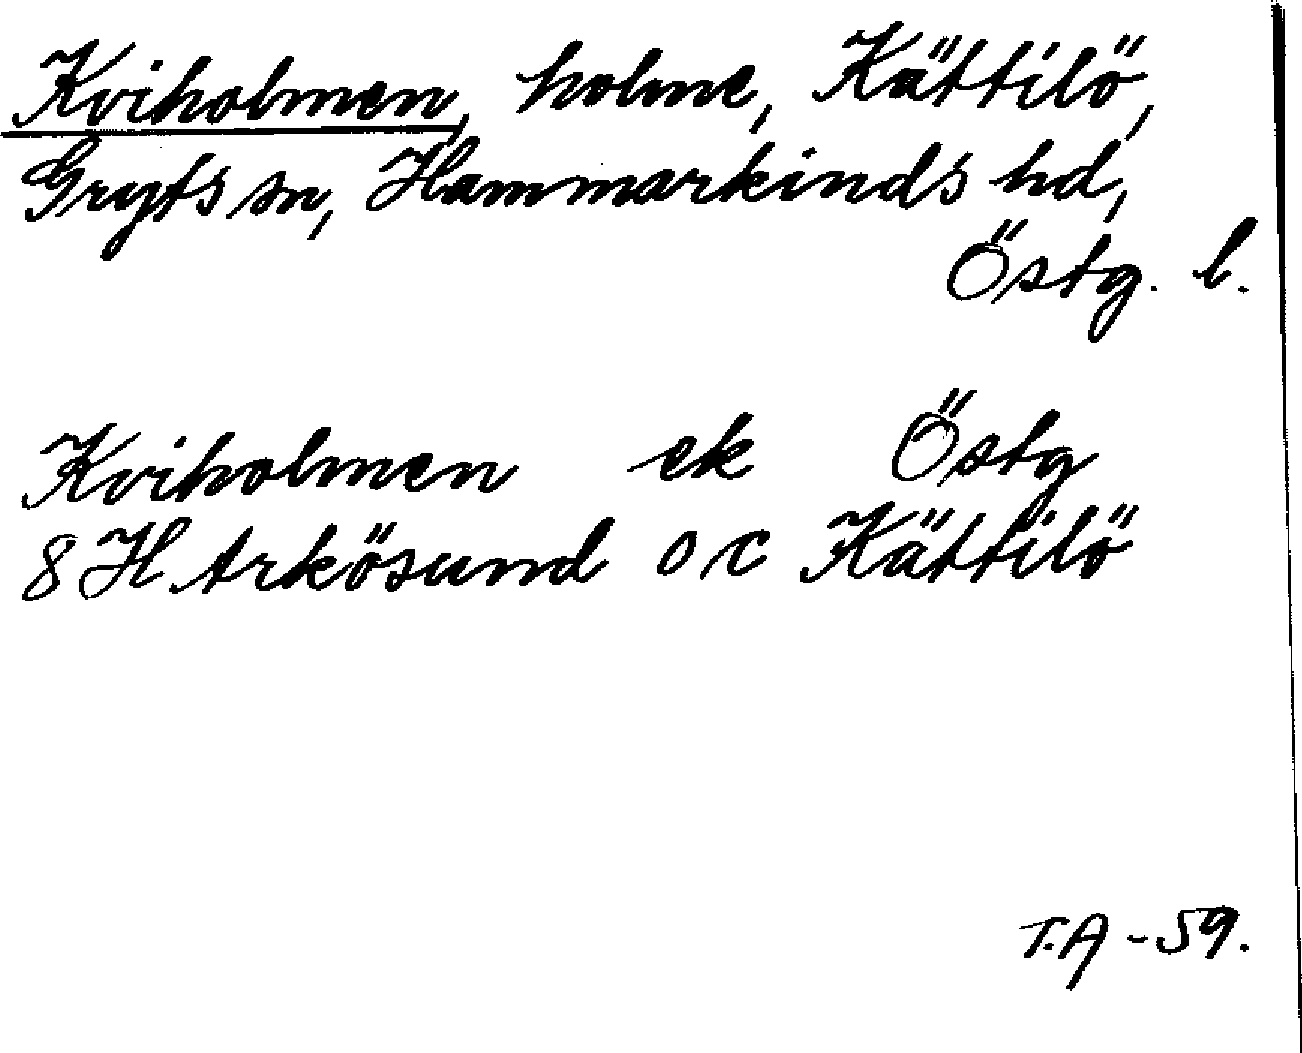 Kviholmen, holme, Kättilö,
Gryts sn, Hammarkinds hd,
Östg. l.
Kviholmen ek Östg
8H Arkösund o c Kättilö
T.A -59.